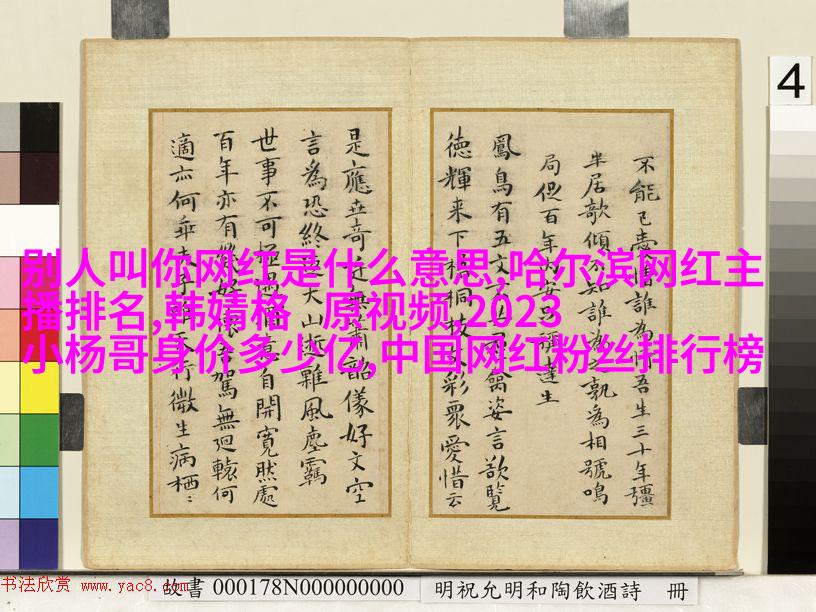 别人叫你网红是什么意思,哈尔滨网红主
播排名,韩婧格 原视频,2023
小杨哥身价多少亿,中国网红粉丝排行榜
4
不能已 憎誰為 吾生三十年彊
半居歌傾 知誰為 孰為相號鳴
局促百年 達生
鳳鳥有五文 姿言欲覽
德輝来下 桐枝 彩眾愛惜云
是應 奇 蕭韶儀好文空
言為恐終 大山逝難風塵羈
世事不可 自開寬然處
百年亦有 駕無迴轅何
適亦何乖 行微生病栖
书法欣赏 www.yac8.com
故書 000178N000000000
明祝允明和陶飲酒詩 冊